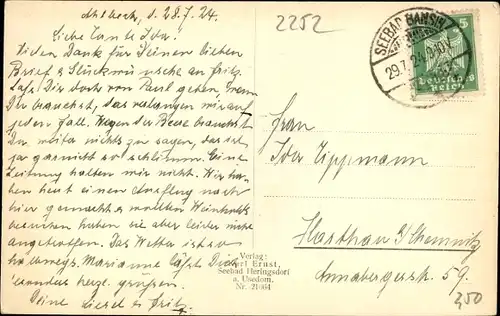 Ahlbeck, d. 28.7.24.
Liebe Tante Ida!
Vielen Dank für Deinen lieben
Brief u. Glückwünsche an Fritz.
Laß Dir doch von Paul geben, wenn
Du brauchst, das verlangen wir auf
jeden Fall. Wegen der Beene brauchst
Du weiter nichts zu sagen, das ist
ja garnicht so schlimm. Eine
Zeitung halten wir nicht. Wir ha-
ben heut einen Ausflug nach
hier gemacht u. wollten Weinholds
besuchen haben sie aber leider nicht
angetroffen. Das Wetter ist so
halbwegs. Marianne läßt Dich
besonders herzl. grüßen.
Deine Liesel u. Fritz.
2252
SEEBAD BANSIN
29.7.24
5
Deutsches
Reich
Frau
Ida Zippmann
Harthau b/Chemnitz
Annabergerstr. 59.
350
Verlag:
Ernst,
Seebad Heringsdorf
a. Usedom.